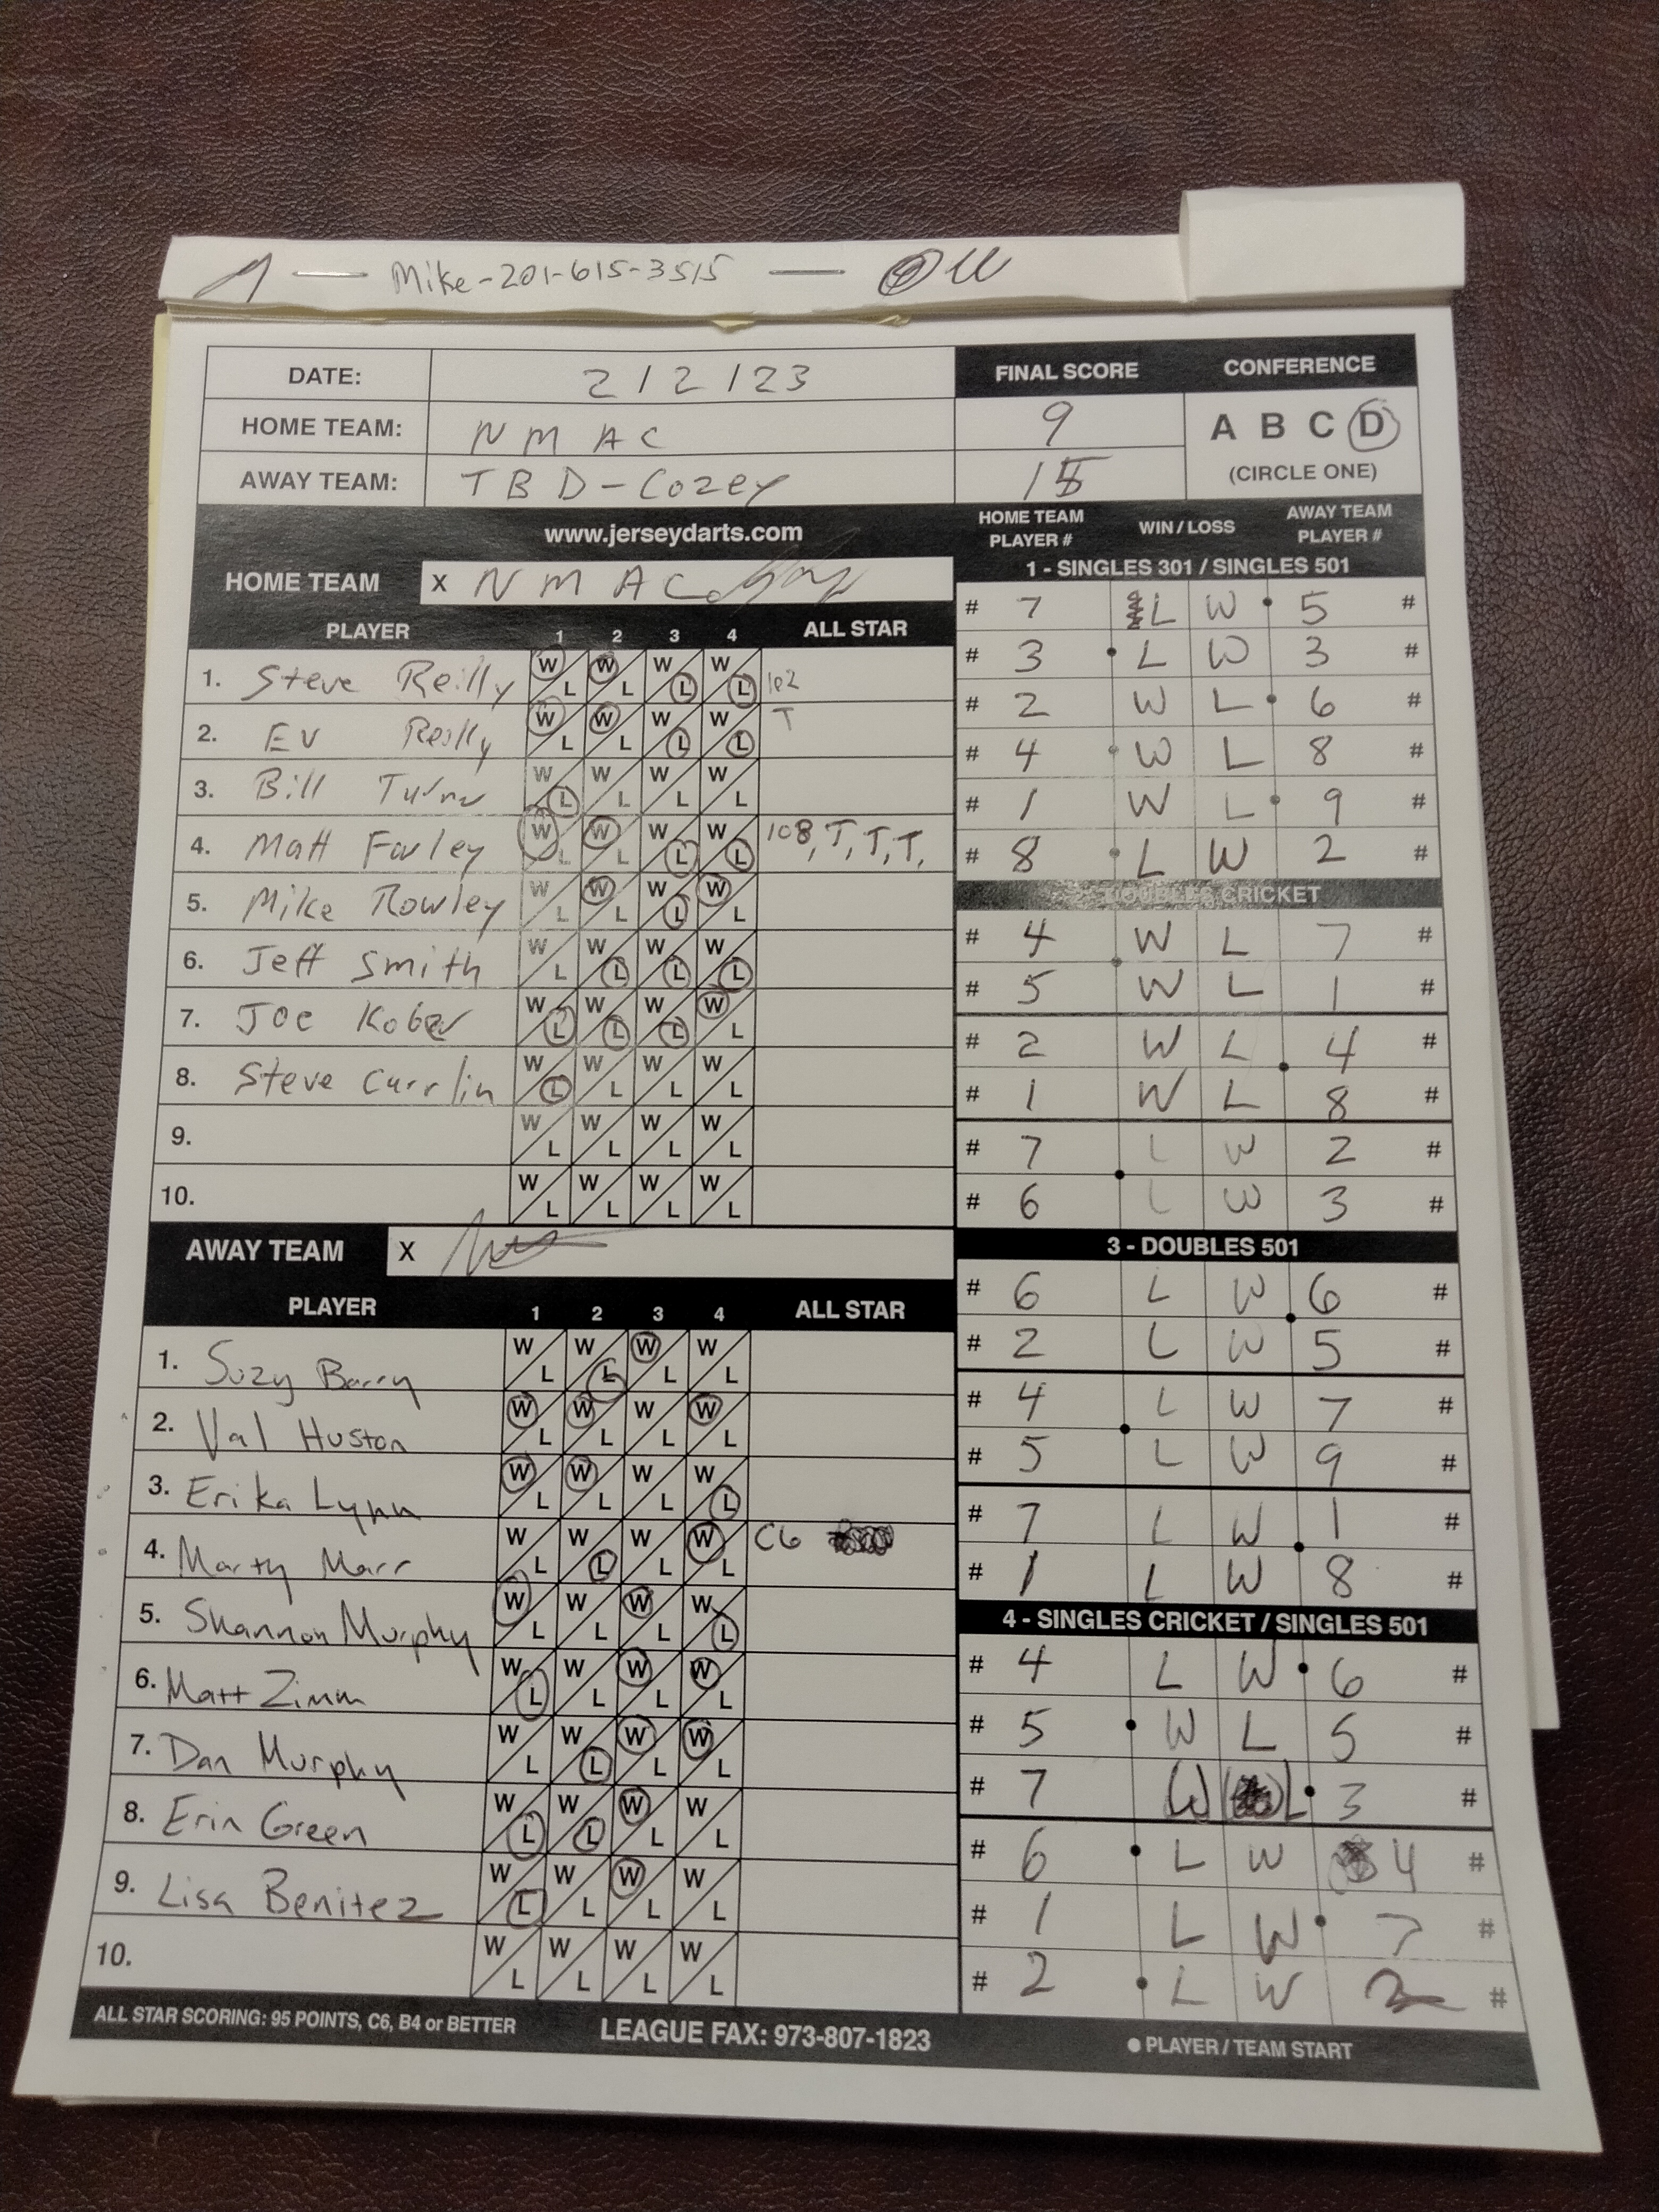 Mike-201-615-3515
DATE: 2/2/23 FINAL SCORE CONFERENCE
HOME TEAM: NMAC 9 A B C D
AWAY TEAM: TBD-Cozey 15 (CIRCLE ONE)
www.jerseydarts.com HOME TEAM PLAYER # WIN / LOSS AWAY TEAM PLAYER #
HOME TEAM X NMAC
1 - SINGLES 301 / SINGLES 501
PLAYER 1 2 3 4 ALL STAR
1. Steve Reilly W L W L W L W L 102
2. Ev Reilly W L W L W L W L T
3. Bill W L W L W L W L
4. Matt Farley W L W L W L W L 108, T, T, T,
5. Mike Rowley W L W L W L W L
6. Jeff Smith W L W L W L W L
7. Joe Kober W L W L W L W L
8. Steve Currlin W L W L W L W L
9. W L W L W L W L
10. W L W L W L W L
# 7 L W 5 #
# 3 L W 3 #
# 2 W L 6 #
# 4 W L 8 #
# 1 W L 9 #
# 8 L W 2 #
2 - DOUBLES CRICKET
# 4 W L 7 #
# 5 W L 1 #
# 2 W L 4 #
# 1 W L 8 #
# 7 L W 2 #
# 6 L W 3 #
AWAY TEAM X
PLAYER 1 2 3 4 ALL STAR
1. Suzy Barry W L W L W L W L
2. Val Huston W L W L W L W L
3. Erika Lynn W L W L W L W L
4. Marty Marr W L W L W L W L C6
5. Shannon Murphy W L W L W L W L
6. Matt Zimm W L W L W L W L
7. Dan Murphy W L W L W L W L
8. Erin Green W L W L W L W L
9. Lisa Benitez W L W L W L W L
10. W L W L W L W L
3 - DOUBLES 501
# 6 L W 6 #
# 2 L W 5 #
# 4 L W 7 #
# 5 L W 9 #
# 7 L W 1 #
# 1 L W 8 #
4 - SINGLES CRICKET / SINGLES 501
# 4 L W 6 #
# 5 W L 5 #
# 7 W L 3 #
# 6 L W 4 #
# 1 L W 7 #
# 2 L W 2 #
ALL STAR SCORING: 95 POINTS, C6, B4 or BETTER LEAGUE FAX: 973-807-1823 PLAYER / TEAM START